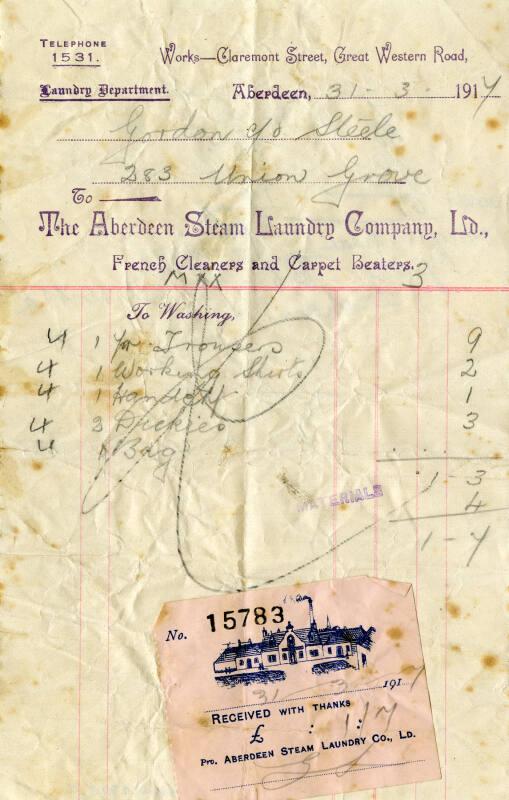 TELEPHONE
1531.
Works—Claremont Street, Great Western Road,
Laundry Department.
Aberdeen, 31 - 3 - 1917
Gordon c/o Steele
283 Union Grove
To
The Aberdeen Steam Laundry Company, Ld.,
French Cleaners and Carpet Beaters.
3
To Washing,
4 1 pr Trousers 9
4 1 Working Shirts 2
4 1 1
4 3 Dickies 3
4 1 Bag
1 - 3
MATERIALS 4
1 - 7
No. 15783
31 - 3 - 1917
RECEIVED WITH THANKS
£ : 1 : 7
Pro. ABERDEEN STEAM LAUNDRY CO., LD.